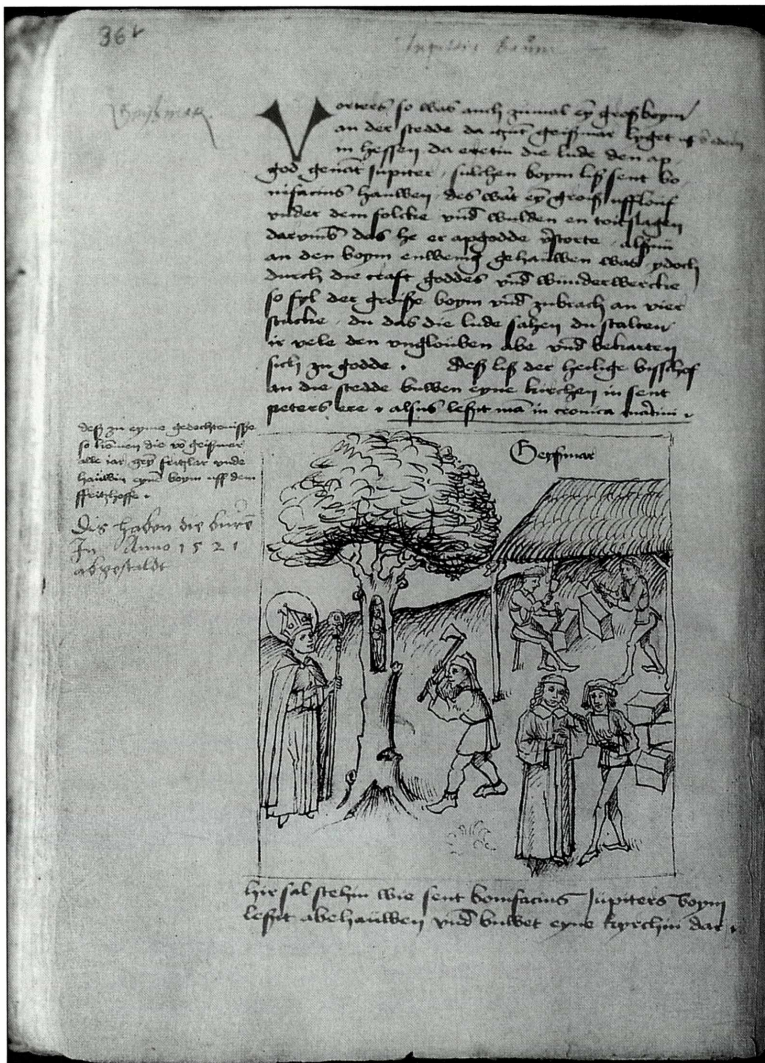 36v
Jupiters Baum
Geißmar
Vorters so was auch zumal eyn groß boym
an der stedde da itzunt geißmar lyget uff der edern
in hessen da eretin die lude den ap
god genant Jupiter, sulchen boym liß sent bo
nifacius hauwen, des wart eyn groiß ufflouf
under dem folcke und wulden en toitslagen
darumb das he er apgodde verstorte, alß nu
an den boym enwenig gehauwen was ydoch
durch die craft goddes und wunderwercke
so fyl der groiße boym und zubrach an vier
stucke, du das die lude sahen du stalten
ir vele den ungloiben abe und bekarten
sich zu godde. Deß liß der heilige bisschof
an die stedde buwen eyne kirchen in sent
peters ere, alsus leßit man in cronica martini.
deß zu eyme gedechteniße
so komen die von geißmar
alle iar gen fritzlar unde
hauwin eynen boym uff dem
fritzhoffe.
Dis haben die burger
In Anno 1521
abgestaldt
Geyßmar
hir sal stehin wie sent bonifacius Jupiters boym
leßit abehauwen und buwet eyne kyrchin dar.